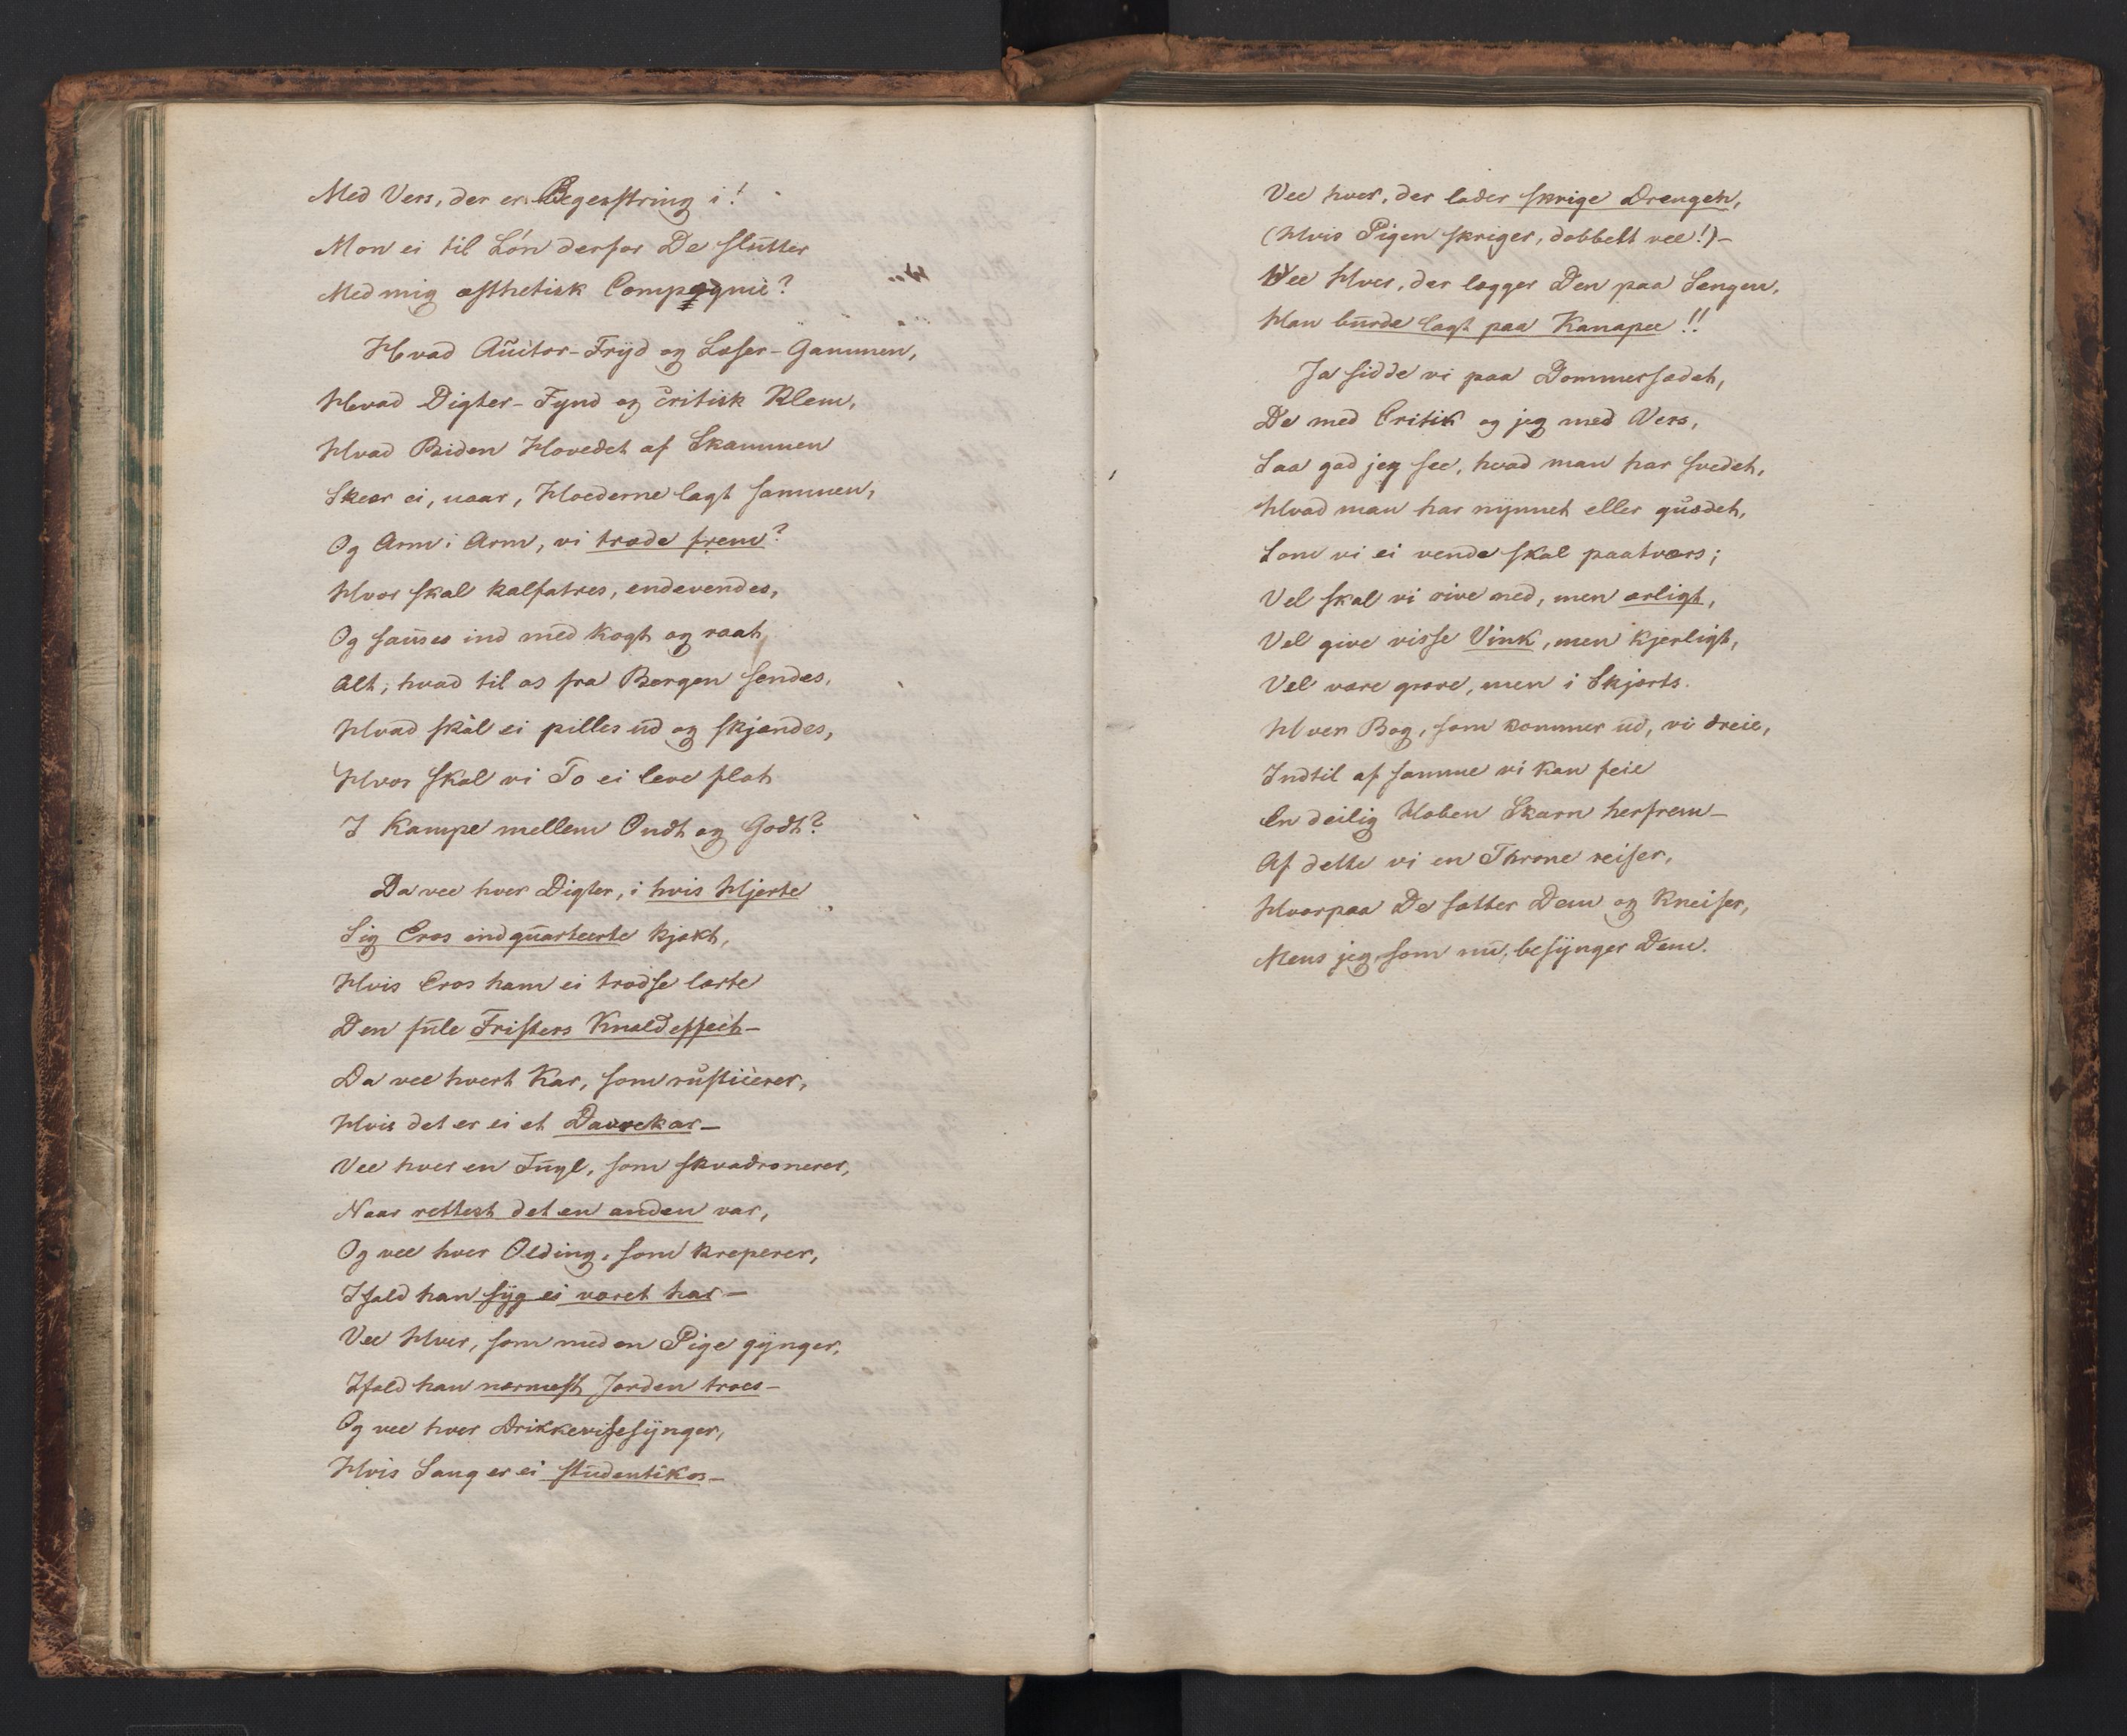 Med Vers, der er Begeistring i!
Mon ei til Løn derfor De slutter
Med mig æsthetisk Compagnie?
Hvad Auctor-Fryd og Læser-Gammen,
Hvad Digter-Fynd og critisk Klem,
Hvad Biden Hovedet af Skammen
Skeer ei, naar, Hoederne lagt sammen,
Og Arm i Arm, vi træde frem?
Hvor skal kalfatres, endevendes,
Og sauses ind med kogt og raat,
Alt, hvad til os fra Bergen sendes,
Hvad skal ei pilles ud og skjændes,
Hvor skal vi To ei leve flot
I Kampe mellem Ondt og Godt?
Da vee hver Digter, i hvis Hjerte
Sig Eros indquarteerte kjækt,
Hvis Eros ham ei trodse lærte
Den fule Fristers Knaldeffect –
Da vee hvert Kar, som rusticerer,
Hvis det er ei et Davrekar –
Vee hver en Fugl, som skvadronerer,
Naar rettest det en anden var,
Og vee hver Olding, som kreperer,
Ifald han syg ei været har –
Vee Hver, som med en Pige gynger,
Ifald han nærmest Jorden troes –
Og vee hver Drikkevisesynger,
Hvis Sang er ei studentikos –
Vee hver, der lader skrige Drengen,
(Hvis Pigen skriger, dobbelt vee!) –
Vee Hver, der lægger Den paa Sengen,
Han burde lagt paa Kanapee!!
Ja sidde vi paa Dommersædet,
De med Critik og jeg med Vers,
Saa gad jeg see, hvad man har svedet,
Hvad man har nynnet eller quædet,
Som vi ei vende skal paatværs;
Vel skal vi rive ned, men ærligt,
Vel give visse Vink, men kjerligt,
Vel være grove, men i Skjærts.
Hver Bog, som kommer ud, vi dreie,
Indtil af samme vi kan feie
En deilig Hoben Skarn herfrem –
Af dette vi en Throne reiser,
Hvorpaa De sætter Dem og kneiser,
Mens jeg, som nu, besynger Dem.